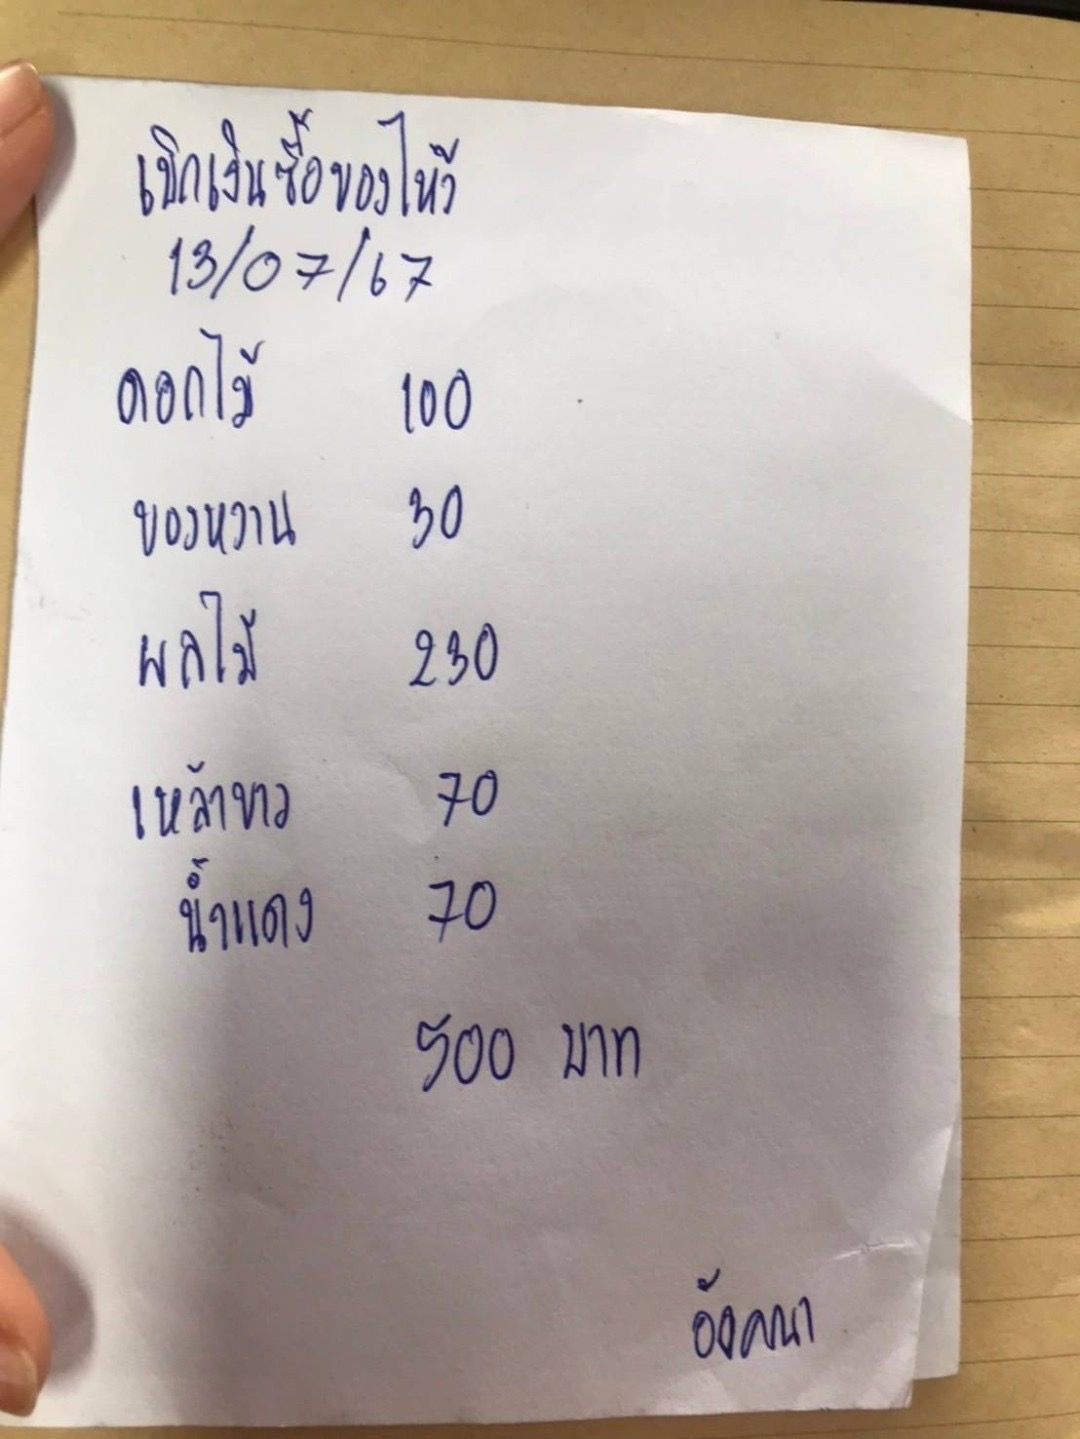 เบิกเงินซื้อของไหว้
13/07/67
ดอกไม้ 100
ของหวาน 30
ผลไม้ 230
เหล้าขาว 70
น้ำแดง 70
500 บาท
อังคณา